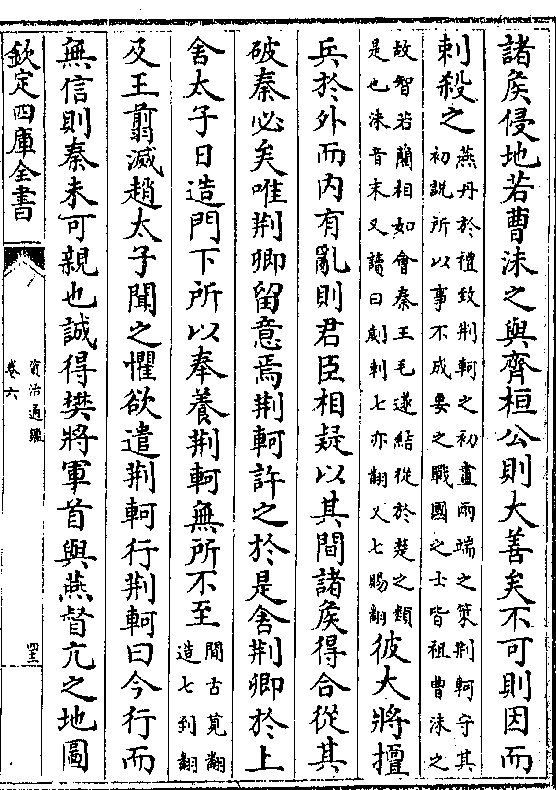 諸矦侵地若曹沬之與齊桓公則大善矣不可則因而
刺殺之
燕丹於禮致荆軻之初畫兩端之策荆軻守其
初說所以事不成要之戰國之士皆祖曹沬之
故智若藺相如會秦王毛遂結從於楚之類
是也沬音末又讀曰劌刺七亦翻又七賜翻
彼大將擅
兵於外而内有亂則君臣相疑以其間諸矦得合從其
破秦必矣唯荆卿留意焉荆軻許之於是舍荆卿於上
舍太子日造門下所以奉養荆軻無所不至
間古莧翻
造七到翻
及王翦滅趙太子聞之懼欲遣荆軻行荆軻曰今行而
無信則秦未可親也誠得樊將軍首與燕督亢之地圖
欽定四庫全書
資治通鑑
卷六